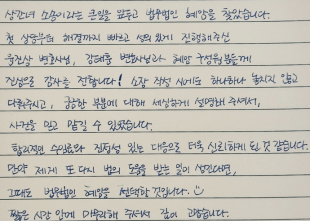 상간녀 소송이라는 큰일을 앞두고 법무법인 혜양을 찾았습니다.
첫 상담부터 해결까지 빠르고 성의있게 진행해주신
윤진상 변호사님, 김태훈 변호사님과 혜양 구성원분들께
진심으로 감사를 전합니다! 소장 작성 시에도 하나하나 놓치지 않고
다뤄주시고, 궁금한 부분에 대해 세심하게 설명해 주셔서,
사건을 믿고 맡길 수 있었습니다.
합리적인 수임료와 진정성 있는 대응으로 더욱 신뢰하게 된 것 같습니다.
만약 제게 또 다시 법의 도움을 받는 일이 생긴다면,
그때도 법무법인 혜양을 선택할 것입니다.
짧은 시간 안에 마무리해 주셔서 깊이 감사합니다.